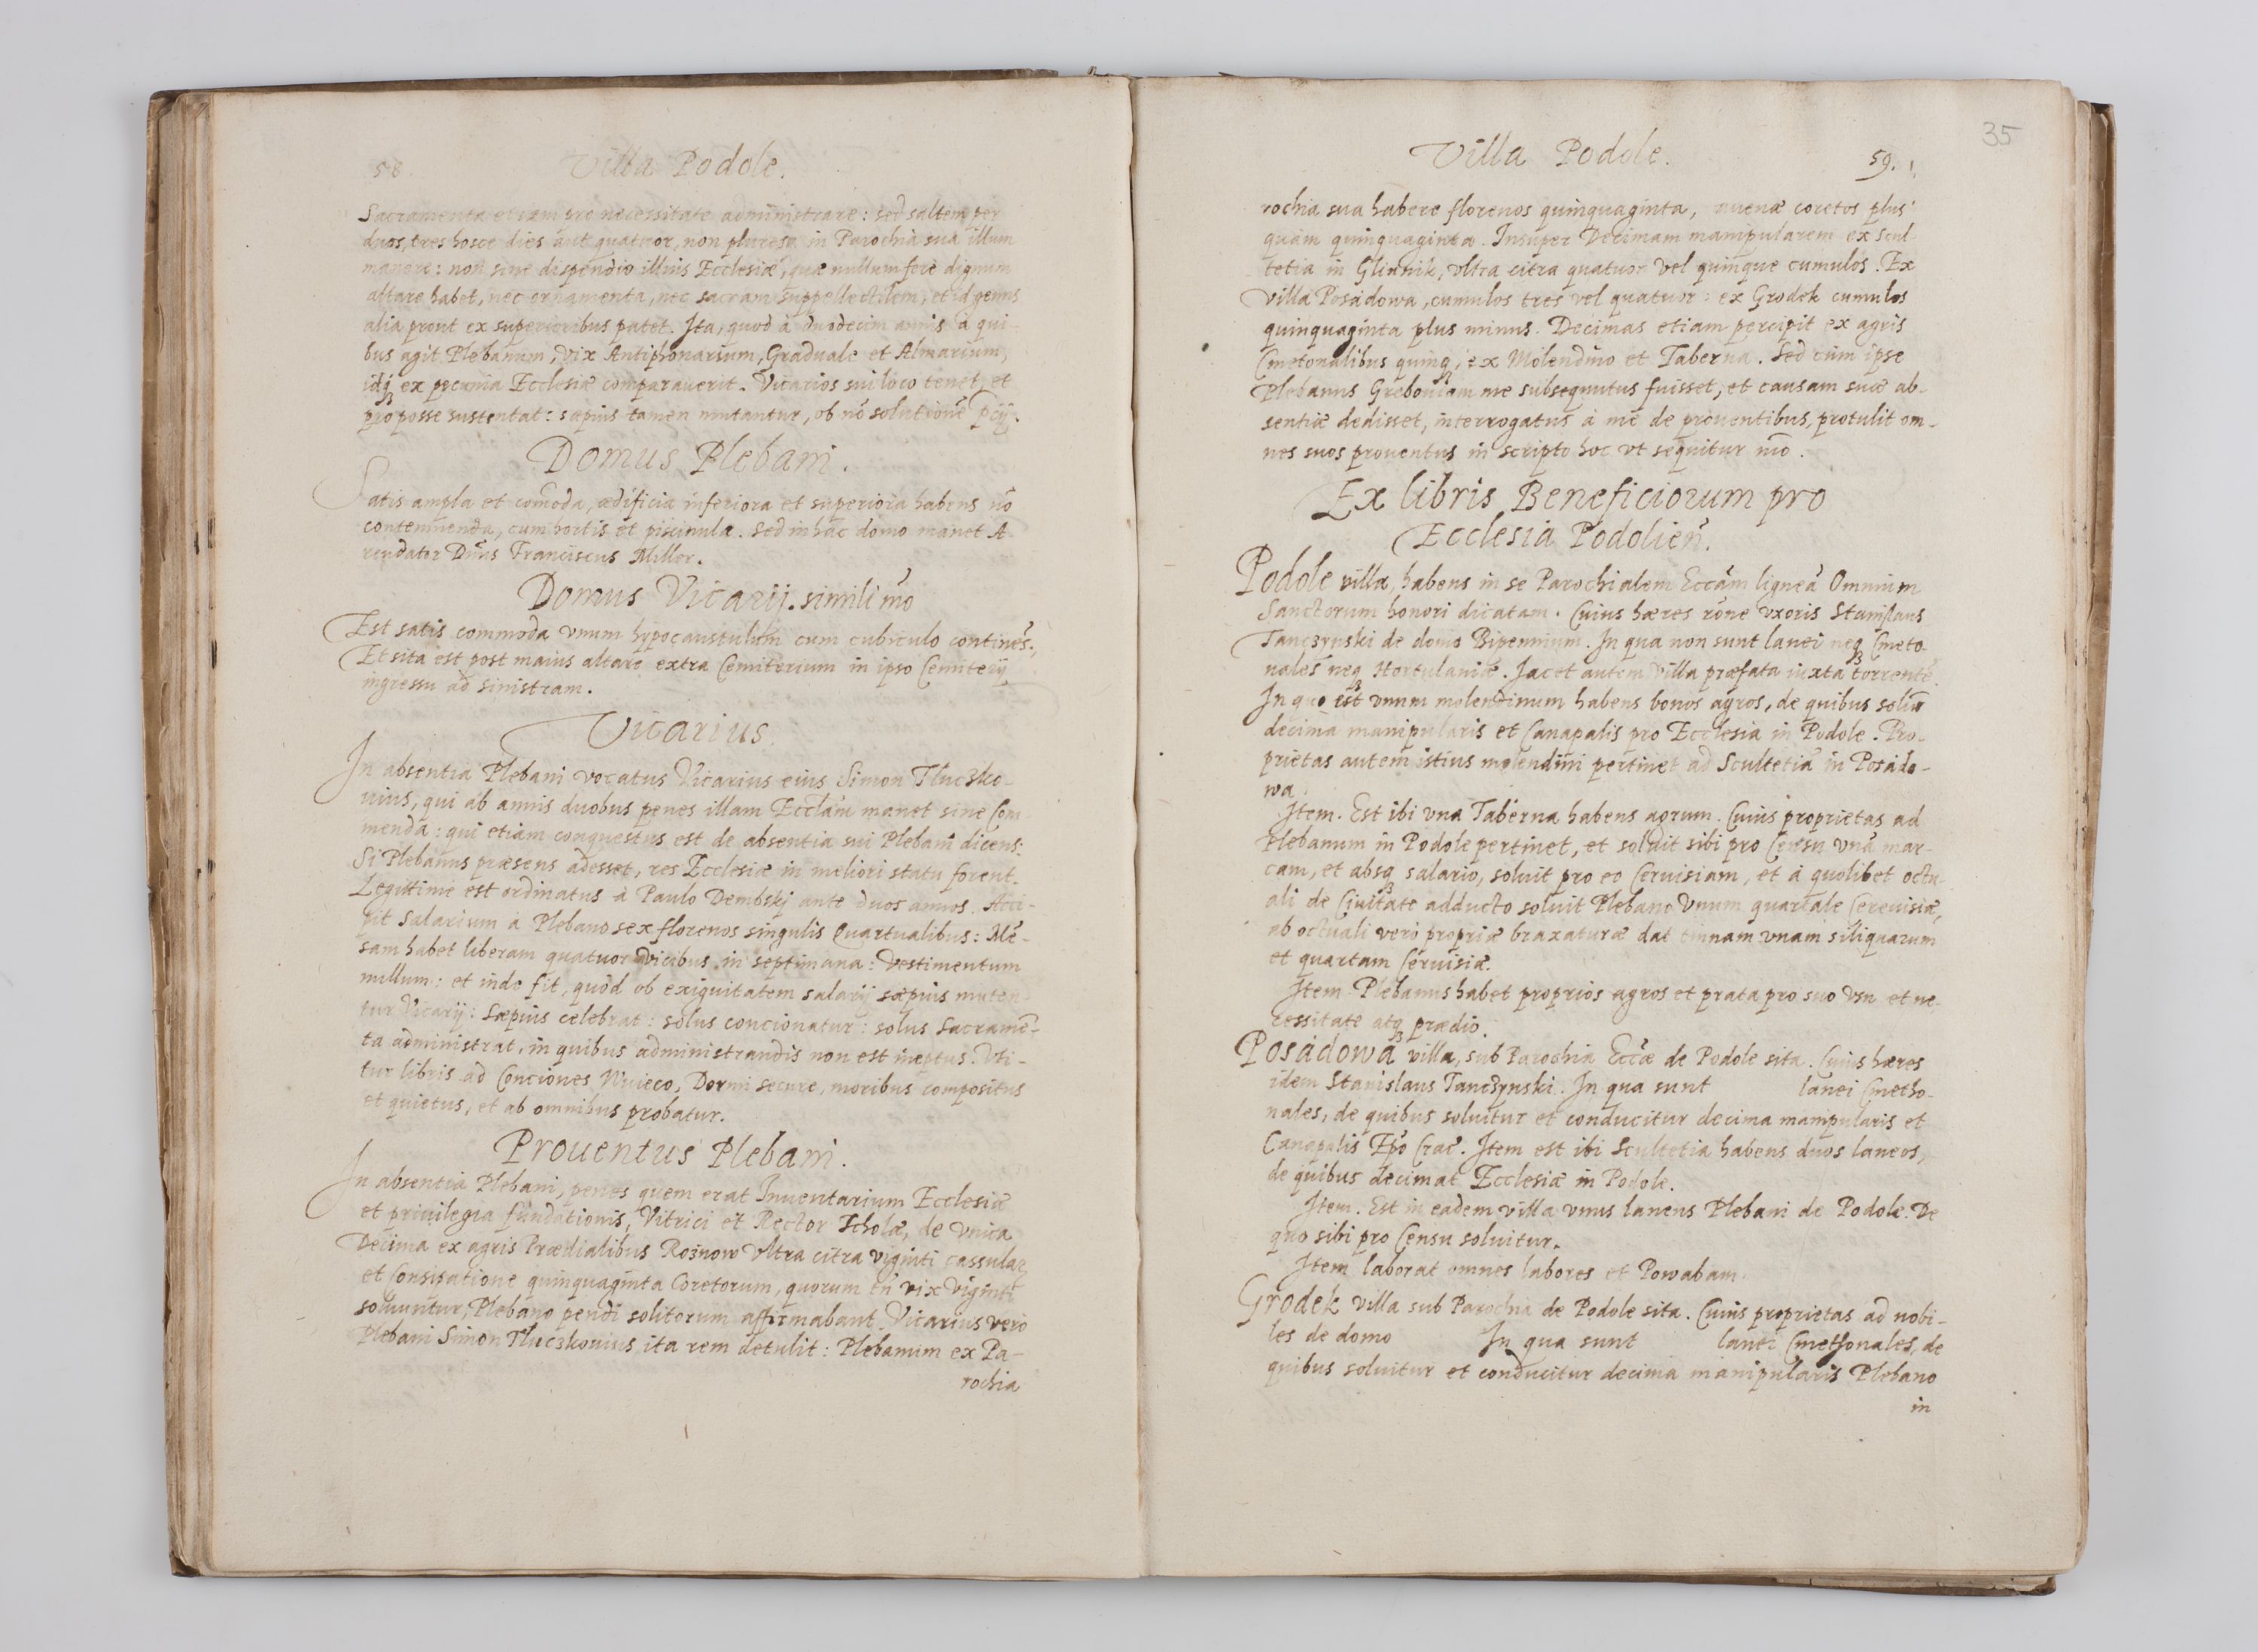 58. Villa Podole.
Sacramenta etiam pro necessitate administrare: sed saltem per
duos, tres hosce dies aut quatuor, non plures in Parochia sua illum
manere: non sine dispendio illius Ecclesiæ, quæ nullum ferè dignum
altare habet, nec ornamenta, nec sacram suppellectilem, et id genus
alia prout ex superioribus patet. Ita, quod à duodecim annis a qui-
bus agit Plebanum, vix Antiphonarium, Graduale et Almarium,
idq; ex pecunia Ecclesiæ comparauerit. Vicarios sui loco tenet, et
pro posse sustentat: sæpius tamen mutantur, ob nō solutionē
Domus Plebani.
Satis ampla et com̄oda, ædificia inferiora et superiora habens nō
contemnenda, cum hortis et piscinula. Sed in hac domo manet A-
rendator Dn̄s Franciscus Miller.
Domus Vicarij. simili mō
Est satis commoda vnum hypocaustulum cum cubiculo continēs.
Et sita est post maius altare extra Cemiterium in ipso Cemiterij
ingressu ad sinistram.
Vicarius
In absentia Plebani vocatus Vicarius eius Simon Tluczko-
uius, qui ab annis duobus penes illam Ecclām manet sine Com-
menda: qui etiam conquestus est de absentia sui Plebani dicens:
Si Plebanus præsens adesset, res Ecclesiæ in meliori statu forent.
Legittime est ordinatus à Paulo Dembskj ante duos annos. Acci-
pit Salarium a Plebano sex florenos singulis Quartualibus: Mē-
sam habet liberam quatuor vicibus in septimana: vestimentum
nullum: et inde fit, quòd ob exiguitatem salarij sæpius muten-
tur Vicarij: sæpius celebrat: solus concionatur: solus Sacramē-
ta administrat, in quibus administrandis non est ineptus. Vti-
tur libris ad Conciones Wuieco, Dormi secure, moribus compositus
et quietus, et ab omnibus probatur.
Prouentus Plebani.
In absentia Plebani, penes quem erat Inuentarium Ecclesiæ
et priuilegia fundationis, Vitrici et Rector Scholæ, de vnica
Decima ex agris Prædialibus Rosnow vltra citra viginti cassulas
et Consitatione quinquaginta Coretorum, quorum tn̄ vix viginti
soluuntur, Plebano pendi solitorum affirmabant. Vicarius verò
Plebani Simon Tluczkouius ita rem detulit: Plebanum ex Pa-
rochia
35
Villa Podole. 59.
rochia sua habere florenos quinquaginta, auenæ coretos plus
quàm quinquaginta. Insuper Decimam manipularem ex Scul-
tetia in Glinnik, vltra citra quatuor vel quinque cumulos. Ex
villa Posadowa, cumulos tres vel quatuor: ex Grodek cumulos
quinquaginta plus minus. Decimas etiam percipit ex agris
Cmetonalibus quinq; ex Molendino et Taberna. Sed cùm ipse
Plebanus Greboniam me subsequutus fuisset, et causam suæ ab-
sentiæ dedisset, interrogatus à me de prouentibus, protulit om-
nes suos prouentus in scripto hoc vt sequitur mō.
Ex libris Beneficiorum pro
Ecclesia Podolien̄.
Podole villa, habens in se Parochialem Eccām ligneā Omnium
Sanctorum honori dicatam. Cuius hæres rōne vxoris Stanislaus
Tanczynski de domo Bipennium. In qua non sunt lanei neq; Cmeto-
nales neq; Hortulaniæ. Jacet autem villa præfata iuxta torrentē.
In quo est vnum molendinum habens bonos agros, de quibus soluit̄
decima manipularis et Canapalis pro Ecclesia in Podole. Pro-
prietas autem istius molendini pertinet ad Scultetiā in Posado-
wa.
Item. Est ibi vna Taberna habens agrum. Cuius proprietas ad
Plebanum in Podole pertinet, et soluit sibi pro Censu vnā mar-
cam, et absq; salario, soluit pro eo Ceruisiam, et à quolibet octu-
ali de Ciuitate adducto soluit Plebano vnum quartale Cereuisiæ,
ab octuali verò propriæ braxaturæ dat tinnam vnam siliquarum
et quartam Ceruisiæ.
Item Plebanus habet proprios agros et prata pro suo vsu et ne-
cessitate atq; prædio.
Posadowa villa, sub Parochia Eccæ de Podole sita. Cuius hæres
idem Stanislaus Tanczynski. In qua sunt lanei Cmetho-
nales, de quibus soluitur et conducitur decima manipularis et
Canapalis Ep̄o Crac̄. Item est ibi Scultetia habens duos laneos,
de quibus decimat Ecclesiæ in Podole.
Item. Est in eadem villa vnus laneus Plebani de Podole. De
quo sibi pro Censu soluitur.
Item laborat omnes labores et Powabam.
Grodek villa sub Parochia de Podole sita. Cuius proprietas ad nobi-
les de domo In qua sunt lanei Cmethonales, de
quibus soluitur et conducitur decima manipularis Plebano
in